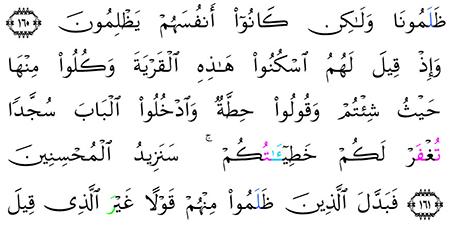 ظَلَمُونَا وَلَٰكِن كَانُوٓا۟ أَنفُسَهُمْ يَظْلِمُونَ ﴿١٦٠﴾
وَإِذْ قِيلَ لَهُمُ ٱسْكُنُوا۟ هَٰذِهِ ٱلْقَرْيَةَ وَكُلُوا۟ مِنْهَا
حَيْثُ شِئْتُمْ وَقُولُوا۟ حِطَّةٌ وَٱدْخُلُوا۟ ٱلْبَابَ سُجَّدًا
تُغْفَرْ لَكُمْ خَطِيٓـَٰٔتُكُمْ ۚ سَنَزِيدُ ٱلْمُحْسِنِينَ
﴿١٦١﴾ فَبَدَّلَ ٱلَّذِينَ ظَلَمُوا۟ مِنْهُمْ قَوْلًا غَيْرَ ٱلَّذِى قِيلَ